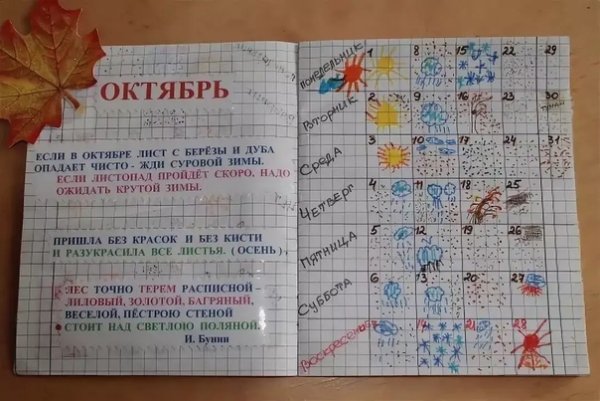 ОКТЯБРЬ
ЕСЛИ В ОКТЯБРЕ ЛИСТ С БЕРЁЗЫ И ДУБА
ОПАДАЕТ ЧИСТО - ЖДИ СУРОВОЙ ЗИМЫ.
ЕСЛИ ЛИСТОПАД ПРОЙДЁТ СКОРО, НАДО
ОЖИДАТЬ КРУТОЙ ЗИМЫ.
ПРИШЛА БЕЗ КРАСОК И БЕЗ КИСТИ
И РАЗУКРАСИЛА ВСЕ ЛИСТЬЯ. (ОСЕНЬ).
ЛЕС ТОЧНО ТЕРЕМ РАСПИСНОЙ –
ЛИЛОВЫЙ, ЗОЛОТОЙ, БАГРЯНЫЙ,
ВЕСЕЛОЙ, ПЁСТРОЮ СТЕНОЙ
СТОИТ НАД СВЕТЛОЮ ПОЛЯНОЙ.
И. Бунин
ПОНЕДЕЛЬНИК 1 8 15 22 29
ВТОРНИК 2 9 16 23 30
СРЕДА 3 10 17 24 31
ЧЕТВЕРГ 4 11 18 25
ПЯТНИЦА 5 12 19 26
СУББОТА 6 13 20 27
Воскресенье 14 21 28